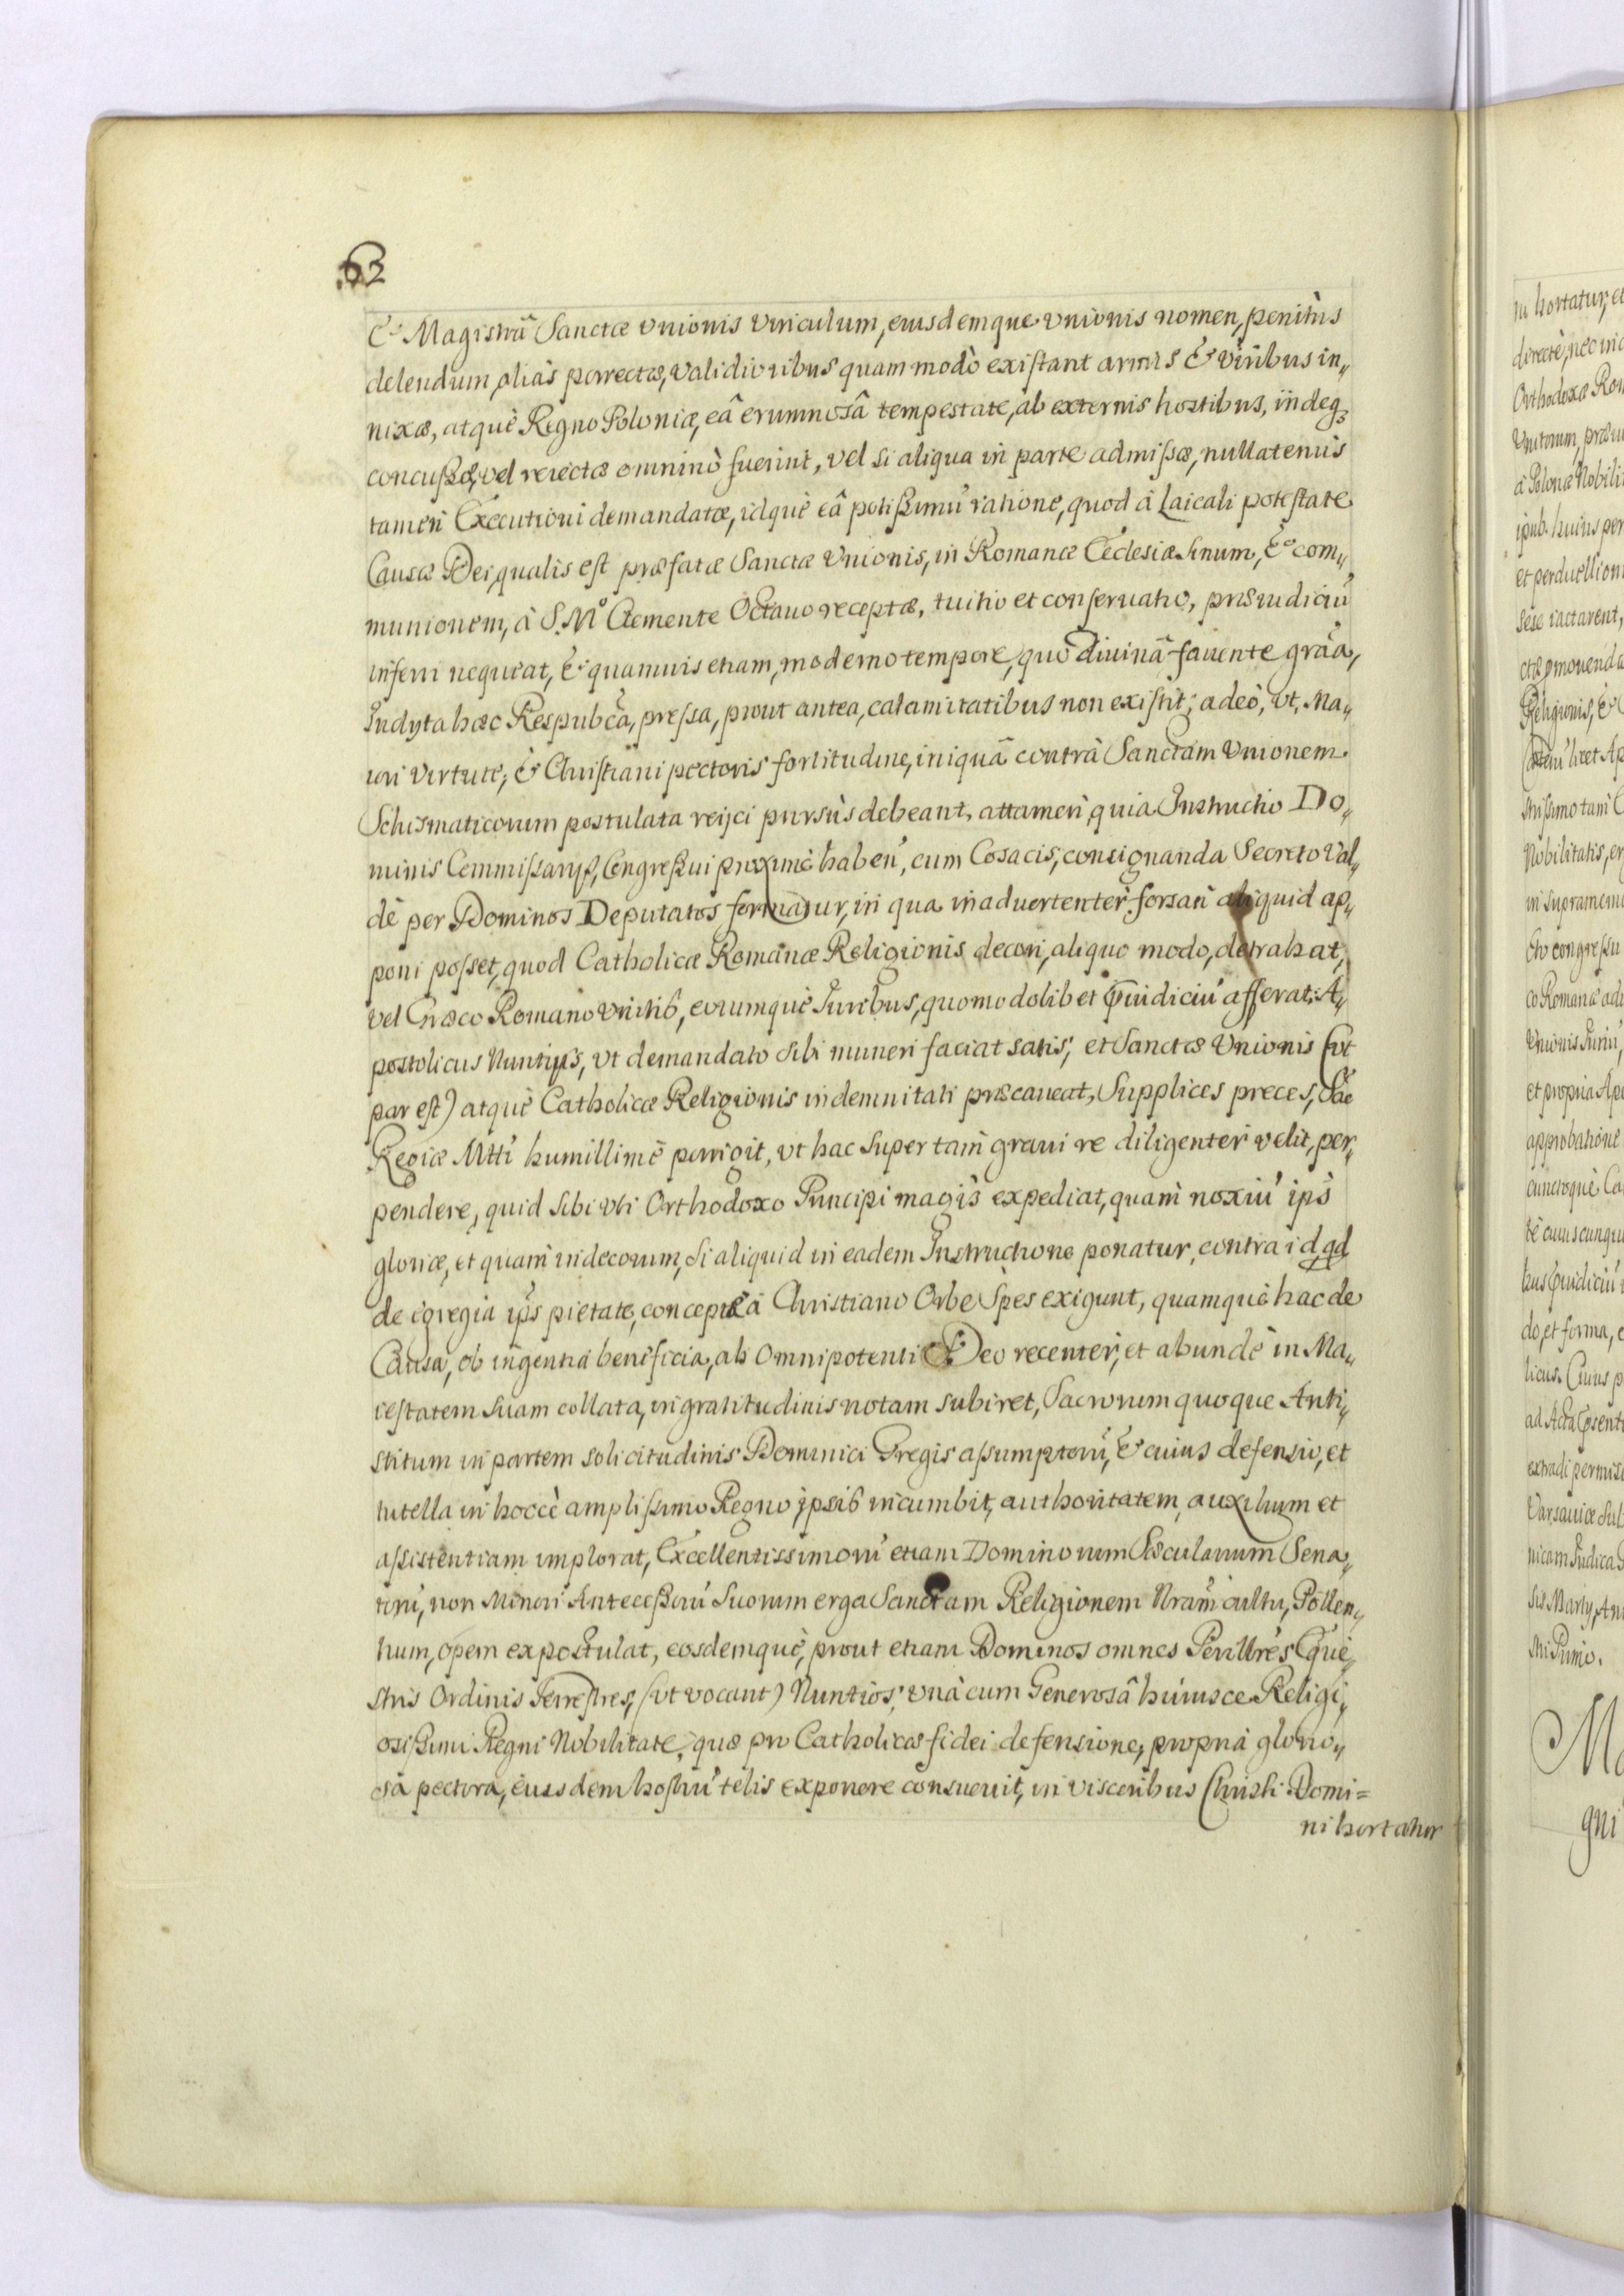 62
& Magistrã Sanctæ Vnionis Vinculum, eiusdemque Vnionis nomen, penitùs
delendum, aliàs porrectæ, validioribus quam modò existant armis & viribus in,,
nixæ, atquè Regno Poloniæ, eâ erumnosâ tempestate, ab externis hostibus, indeq3
concussæ, vel reiectæ omninò fuerint, vel si aliqua in parte admissæ, nullatenùs
tamen Executioni demandatæ, idquè eâ potissimũ ratione, quod à Laicali potestate
Causæ Dei, qualis est præfatæ Sanctæ Vnionis, in Romanæ Ecclesiæ sinum, & com,,
munionem, à S. M.º Clemente Octauo receptæ, tuitio et conseruatio, præiudiciũ
inferri nequeat, & quamuis etiam, moderno tempore, quò diuinâ fauente grãa,
Inclyta hæc Respubcã, pressa, prout antea, calamitatibus non existit; adeò, vt, Ma,,
iori Virtute, & Christiani pectoris fortitudine, iniquã contrà Sanctam Vnionem
Schismaticorum postulata reijci pursùs debeant, attamen quia Instructio Do,,
minis Commissarijs, Congressui proximè habeñ, cum Cosacis, consignanda Secretò Val,,
dè per Dominos Deputatos formatur, in qua inaduertenter forsan aliquid ap,,
poni posset, quod Catholicæ Romanæ Religionis decori, aliquo modo, detrahat,
vel Græco Romano Vnitis, eorumquè Iuribus, quomodolibet p̃iudiciũ afferat; A,,
postolicus Nuntius, vt demandato sibi muneri faciat satis, et Sanctæ Vnionis (vt
par est) atquè Catholicæ Religionis indemnitati præcaueat, Supplices preces, Sãe
Regiæ Mtti humillimè porrigit, vt hac super tam graui re diligenter velit, per,,
pendere, quid sibi vti Orthodoxo Principi magis expediat, quam noxiũ ips
gloriæ, et quam indecorum, si aliquid in eadem Instructione ponatur, contra id, qd
de egregia ips pietate, conceptæ à Christiano Orbe Spes exigunt, quamquè hac de
Causa, ob ingentia beneficia, ab Omnipotenti Deo recenter, et abundè in Ma,,
iestatem Suam collata, ingratitudinis notam subiret, Sacrorum quoque Anti,,
stitum in partem solicitudinis Dominici Gregis assumptorũ, & cuius defensio, et
tutella in hoccè amplissimo Regno ipsis incumbit, authoritatem, auxilium et
assistentiam implorat, Excellentissimorũ etiam Dominorum Sæcularium Sena,,
torũ, non Minori Antecessorũ Suorum erga Sanctam Religionem Nram̃ cultu, Pollen,,
tium, opem expostulat, eosdemquè, prout etiam Dominos omnes Perillres Eque,,
stris Ordinis Terrestres, (vt vocant) Nuntios, vnà cum Generosâ huiusce Religi,,
osissimi Regni Nobilitate, quæ pro Catholicæ fidei defensione, propria glorio,,
sa pectora, eiusdem hostiũ telis exponere consueuit, in visceribus Christi Domi=
ni hortatur